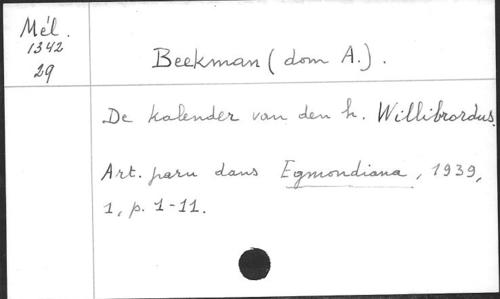 Mél.
1342
29
Beekman (dom A.).
De kalender van den h. Willibrordus.
Art. paru dans Egmondiana, 1939,
1, p. 1-11.